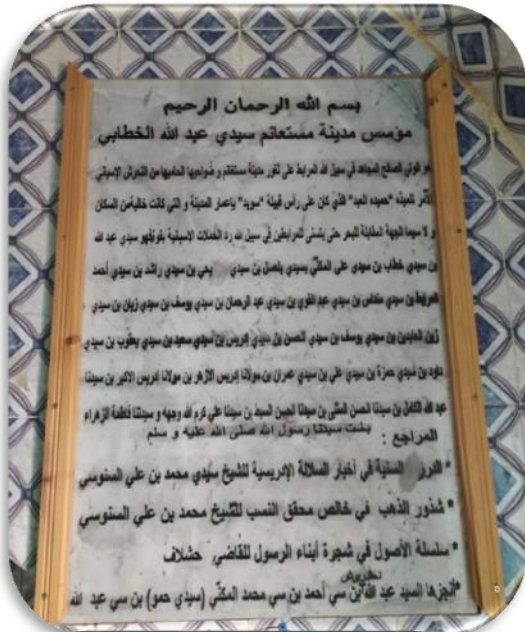 بسم الله الرحمان الرحيم
مؤسس مدينة مستغانم سيدي عبد الله الخطابي
هو الولي الصالح المجاهد في سبيل الله المرابط على ثغور مدينة مستغانم و ضواحيها الحاميها من التحرش الإسباني
الآمر تلميذه "حميده العبد" الذي كان على رأس قبيلة "سويد" بإعمار المدينة و التي كانت خالية من السكان
و لا سيما الجهة المقابلة للبحر حتى يتسنى للمرابطين في سبيل الله رد الحملات الاسبانية بغزاتهم سيدي عبد الله
بن سيدي خطاب بن سيدي علي المكنّى بسيدي بن سيدي يحي بن سيدي راشد بن سيدي أحمد
المرابط بن سيدي منداس بن سيدي عبد القوي بن سيدي عبد الرحمان بن سيدي يوسف بن سيدي زيان بن سيدي
زين العابدين بن سيدي يوسف بن سيدي الحسن بن سيدي إدريس بن سيدي سعيد بن سيدي يعقوب بن سيدي
داود بن سيدي حمزة بن سيدي علي بن سيدي عمران بن مولانا إدريس الأزهر بن مولانا إدريس الاكبر بن سيدنا
عبد الله الكامل بن سيدنا الحسن المثنى بن سيدنا الحسن السبط بن سيدنا علي كرم الله وجهه و سيدتنا فاطمة الزهراء
بنت سيدنا رسول الله صلى الله عليه و سلم
المراجع :
* الدرر السنية في أخبار السلالة الإدريسية للشيخ سيدي محمد بن علي السنوسي
* شذور الذهب في خالص محقق النسب للشيخ محمد بن علي السنوسي
* سلسلة الأصول في شجرة أبناء الرسول للقاضي حشلاف
*أنجزها السيد عبد الله بن سي أحمد بن سي محمد المكنّى (سيدي حمو) بن سي عبد الله